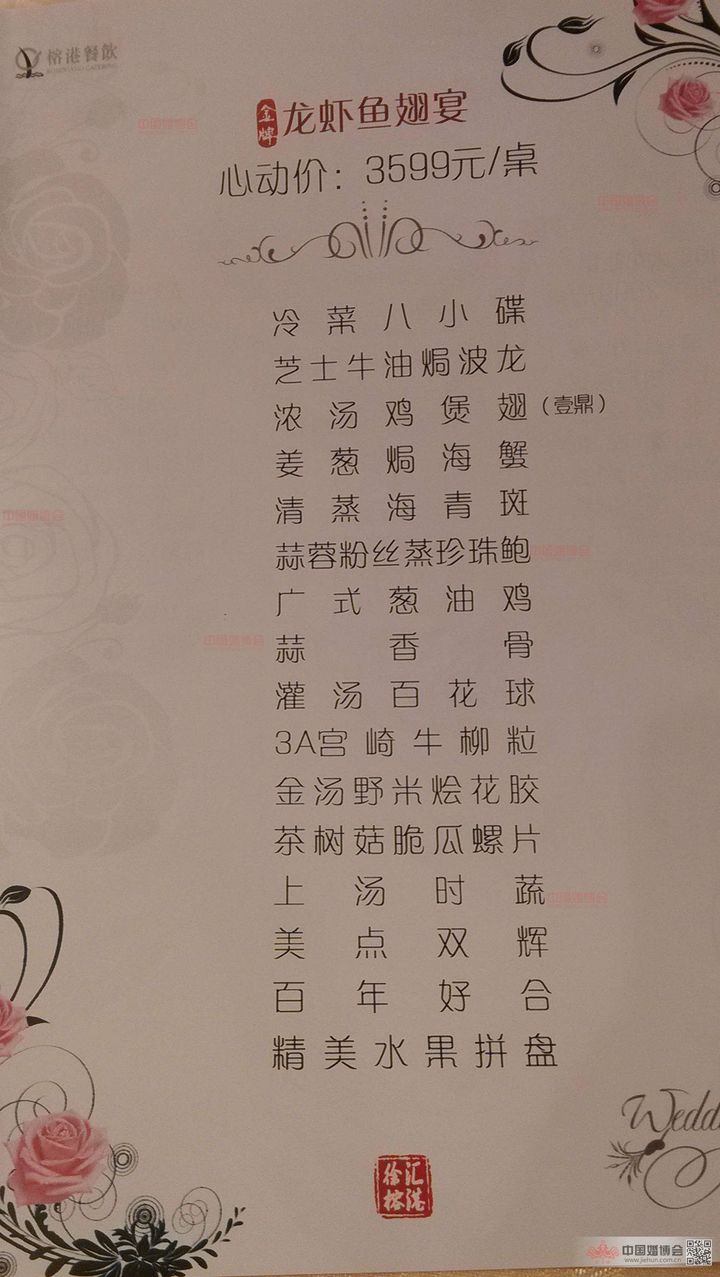 榕港餐饮
金牌 龙虾鱼翅宴
心动价：3599元/桌
冷菜八小碟
芝士牛油焗波龙
浓汤鸡煲翅（壹鼎）
姜葱焗海蟹
清蒸海青斑
蒜蓉粉丝蒸珍珠鲍
广式葱油鸡
蒜香骨
灌汤百花球
3A宫崎牛柳粒
金汤野米烩花胶
茶树菇脆瓜螺片
上汤时蔬
美点双辉
百年好合
精美水果拼盘
Wedd
徐汇
榕港
中国婚博会
www.jiehun.com.cn
中国婚博会
中国婚博会
中国婚博会
中国婚博会
中国婚博会
中国婚博会